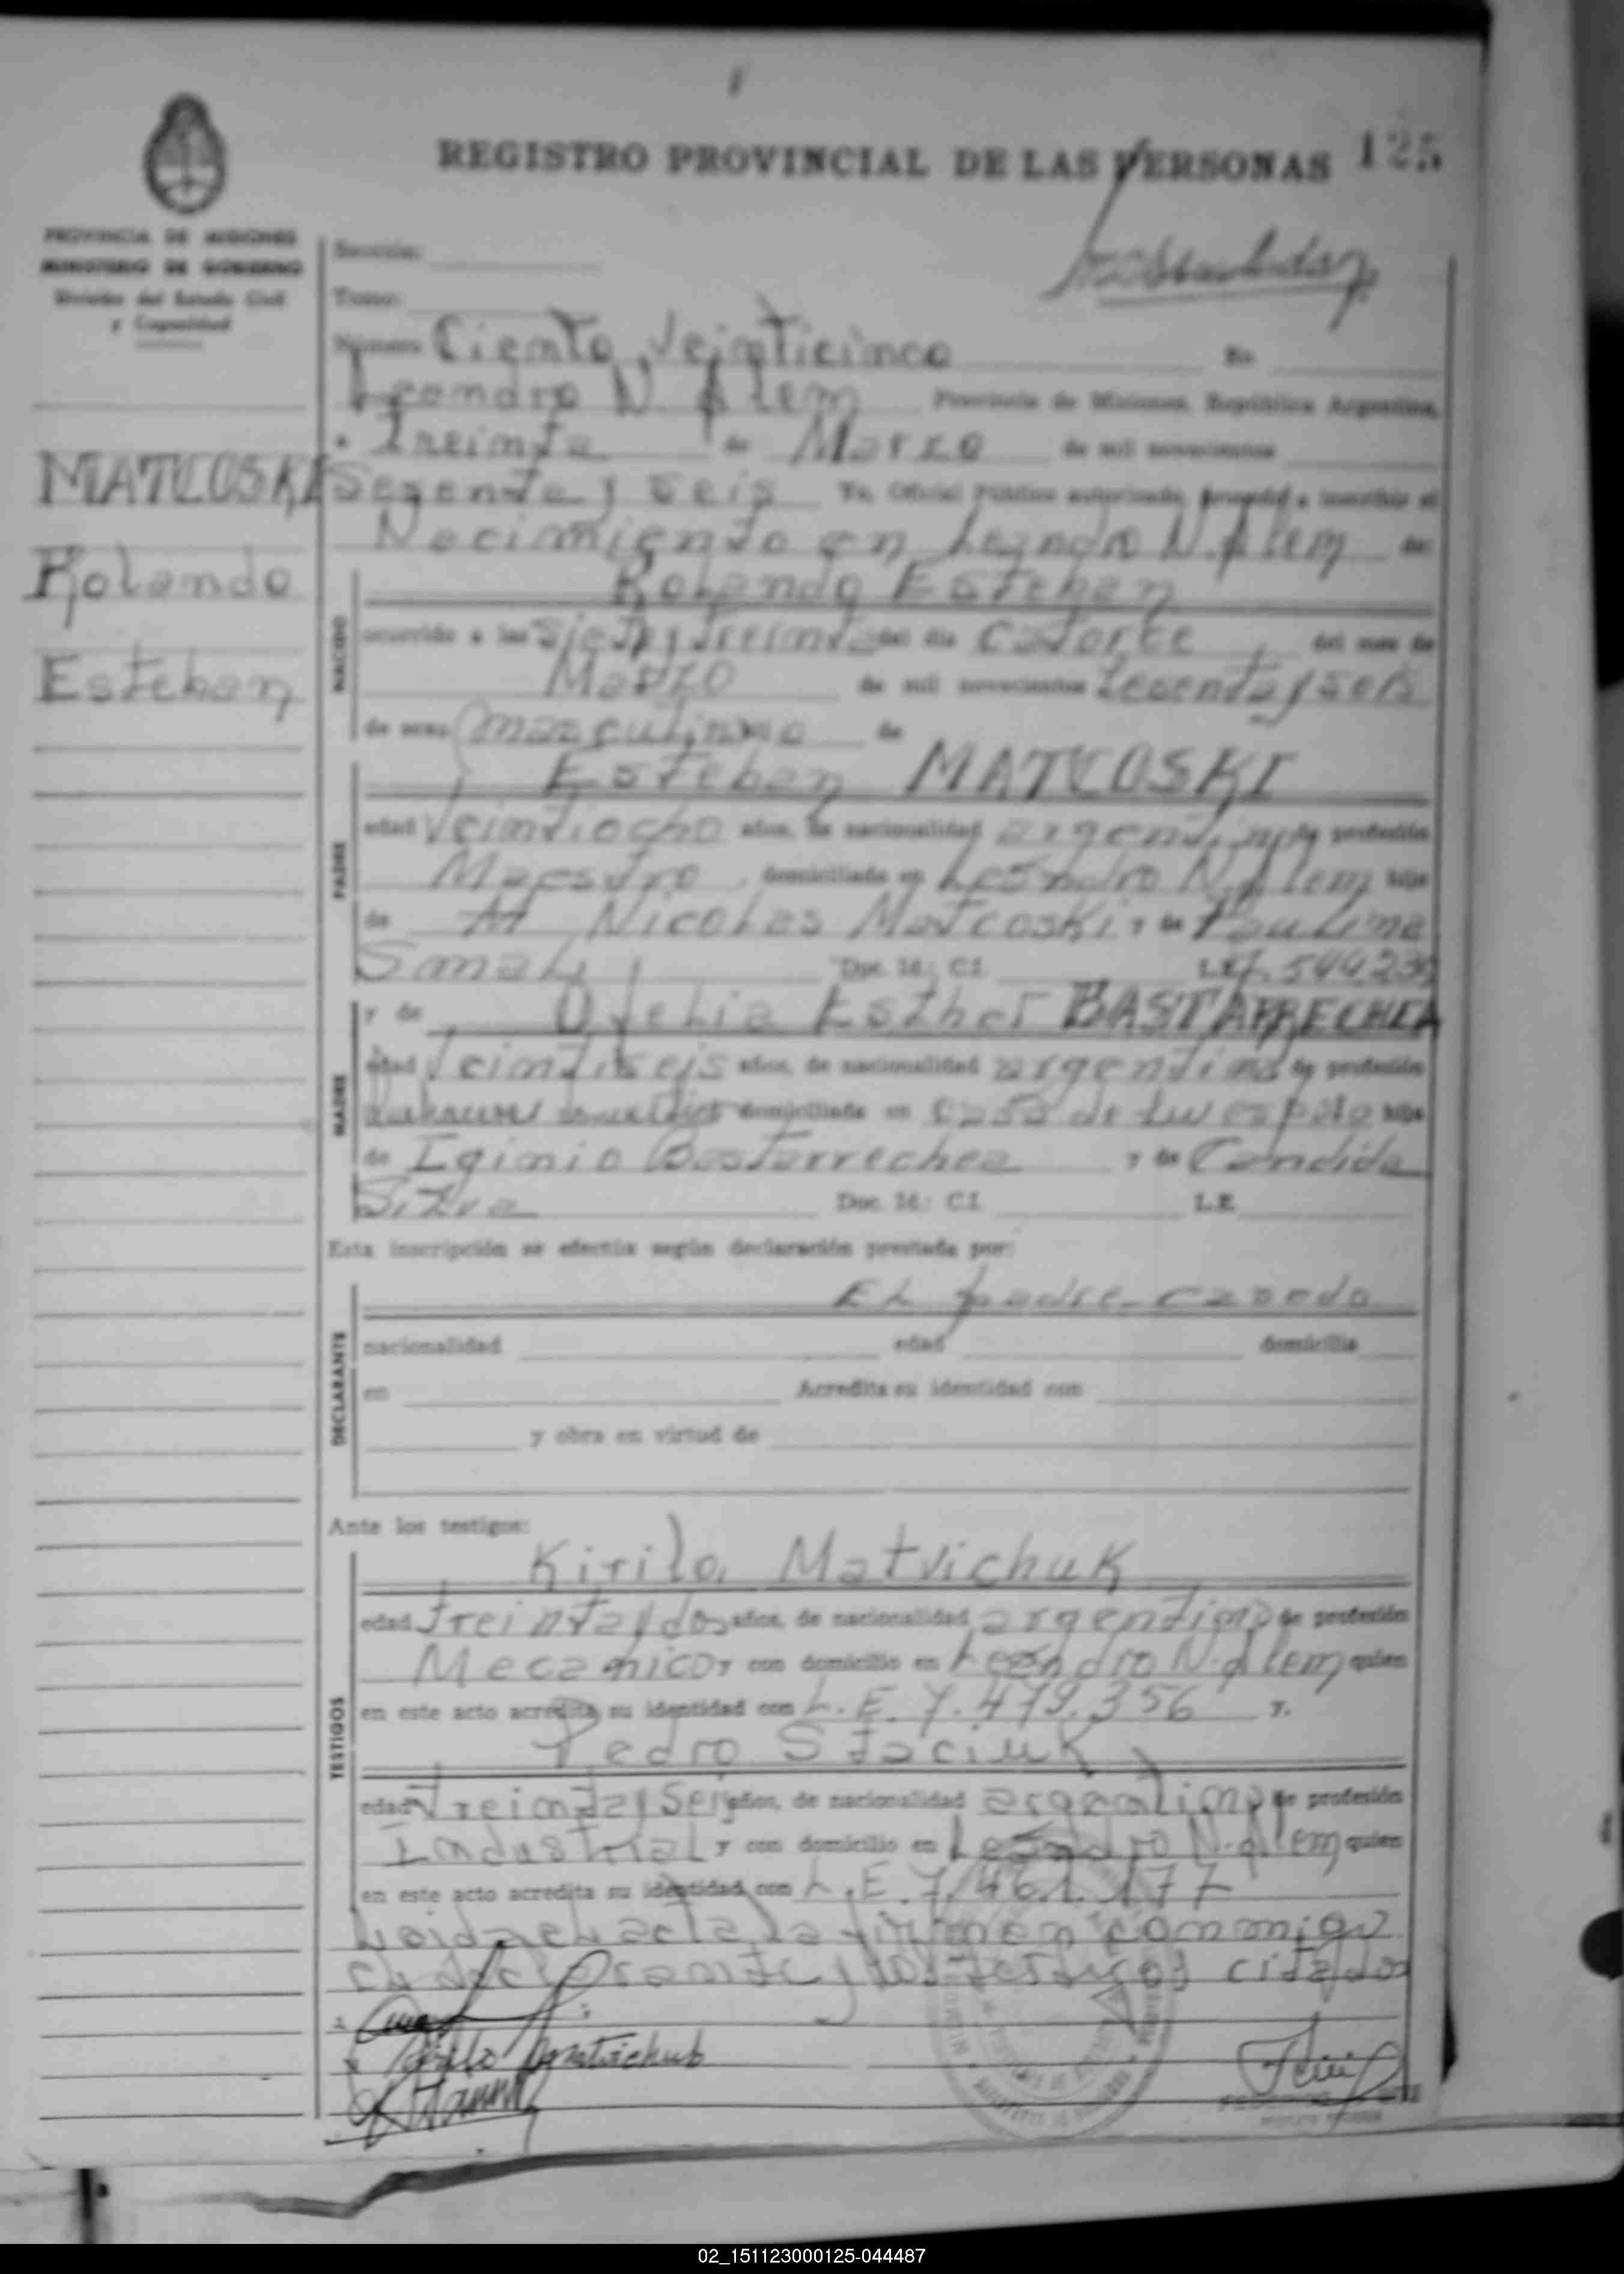 REGISTRO PROVINCIAL DE LAS PERSONAS 125
PROVINCIA DE MISIONES
MINISTERIO DE GOBIERNO
División del Estado Civil
y Capacidad
Sección:
Tomo:
Número Ciento Veinticinco En
Leandro N. Alem Provincia de Misiones, República Argentina,
a Treinta de Marzo de mil novecientos
MATCOSKI Sesenta y seis Yo, Oficial Público autorizado, procedí a inscribir el
Nacimiento en Leandro N. Alem de:
Rolando
Esteban
NACIDO
Rolando Esteban
ocurrido a las Siete y treinta del día Catorce del mes de
Marzo de mil novecientos Sesenta y seis
de sexo masculinno de
PADRE
Esteban MATCOSKI
edad Veintiocho años, de nacionalidad argentino de profesión
Maestro domiciliado en Leandro N. Alem hijo
de Nicolas Matcoski y de Paulina
Smali Doc. Id.: C.I. L.E. 7.544.239
MADRE
y de Ofelia Esther BASTARRECHEA
edad Veintiseis años, de nacionalidad argentina de profesión
domiciliada en Casa de su esposo hija
de Iginio Bastarrechea y de Candida
Silva Doc. Id.: C.I. L.E.
Esta inscripción se efectúa según declaración prestada por:
DECLARANTE
El padre casado
nacionalidad edad domicilia
en Acredita su identidad con
y obra en virtud de
Ante los testigos:
TESTIGOS
Kirilo Matvichuk
edad treinta y dos años, de nacionalidad argentino de profesión
Mecanico y con domicilio en Leandro N. Alem quien
en este acto acredita su identidad con L.E. 7.479.356 y.
Pedro Staciuk
edad Treinta y Seis años, de nacionalidad argentino de profesión
Industrial y con domicilio en Leandro N. Alem quien
en este acto acredita su identidad con L.E. 7.461.177
Leida el acta la firman conmigo
el declarante y los testigos citados
Kirilo Matvichuk
02_151123000125-044487